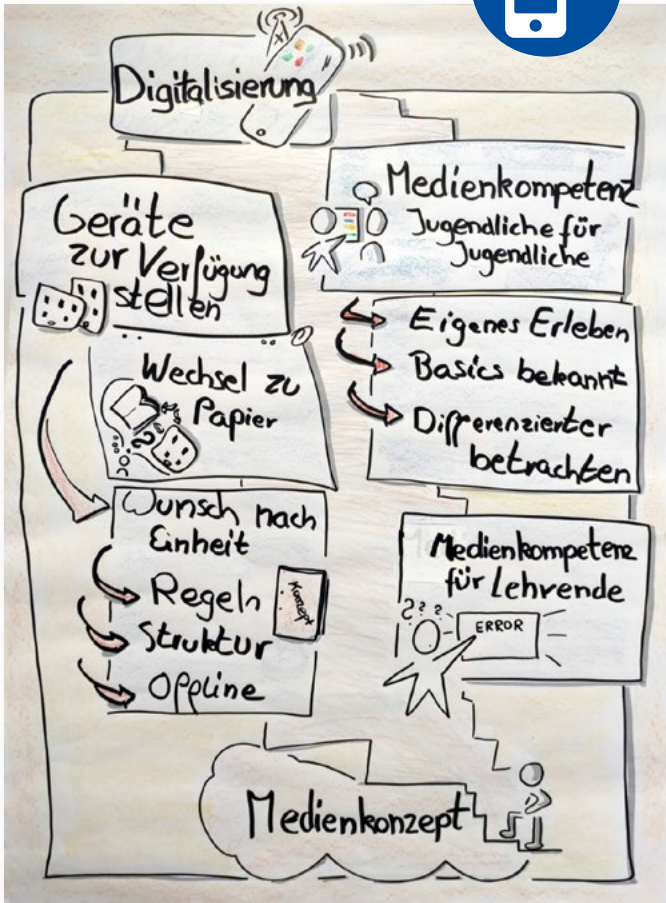 Digitalisierung
Geräte
zur Verfügung
stellen
Wechsel zu
Papier
Wunsch nach
Einheit
Regeln
Struktur
Offline
Konzept
Medienkompetenz
Jugendliche für
Jugendliche
Eigenes Erleben
Basics bekannt
Differenzierter
betrachten
Medienkompetenz
für Lehrende
???
ERROR
Medienkonzept